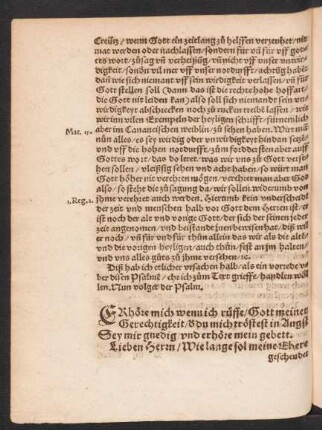 Creütz / wenn Gott ein zeitlang zů helffen verzeuhet / nit
mat werden oder nachlassen / sondern für vñ für vff gott=
es wort / zůsag vñ verheissũg / vñ nicht vff vnser vnwir=
digkeit / sonder vil mer vff vnser notdurfft / achtũg haben
das wie sich niemant vff sein wirdigkeit verlassen / vñ für
Gott stellen soll Dann das ist die rechte hohe hoffart /
die Gott nit leiden kan) also soll sich niemandt sein vn=
wirdigkeit abschrecken noch zů rucken treibẽ lassen / wie
wir inn vilen Exempeln der heyligen schrifft / fürnemlich
Mat. 15. aber im Cananeischen weiblin / zů sehen haben. Wir můssen
nũn alles / es sey wirdig oder vnwirdigkeyt hindan setzẽ
vnd vff die hohen notdurfft / zům fordersten aber auff
Gottes wort / das do leret / was wir vns zů Gott verse=
hen sollen / vleissig sehen vnd acht haben / so wirt man
Gott höher nit verehren mögen / verehret man aber Gott
also / so steht die zůsagung da / wir sollen widerumb von
1.Reg.2. jhme verehret auch werden. Hierumb kein vnderscheid
der zeit vnd menschen halb vor Gott dem Herren ist / er
ist noch der alt vnd vorige Gott / der sich der seinen jeder
zeit angenomen / vnd beistandt jhnen bewisen hat / diß will
er noch / vñ für vnd für / thůn allein das wir als die alte
vnd die vorigen heyligen / auch thůn / fest an jm halten
vnd vns alles gůts zů jhme versehen / ꝛc.
Diß hab ich etlicher vrsachen halb / als in vorrede v=
ber disen Psalmẽ / ehe ich zům Text grieffe / handlen wöl
len. Nun volget der Psalm.
ERhöre mich wenn ich růffe / Gott meiner
Gerechtigkeit / Ddu mich tröstest in Angst
Sey mir gnedig vnd erhöre mein gebett.
Lieben Herrn / Wie lange sol meine Ehere
geschendet